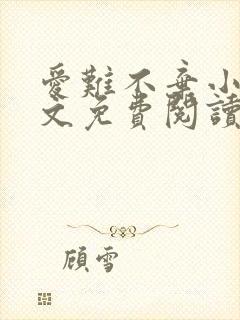 愛難不棄小
文免費閱讀
顧雪